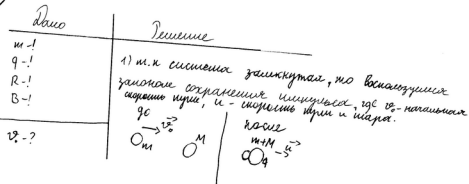 Дано
Решение
m-!
q-!
R-!
B-!
v₀-?
1) т.к система замкнутая, то воспользуемся
законом сохранения импульса, где v₀-начальная
скорость пули, u - скорость пули и шара.
до
после
v₀
m
M
m+M
u
q